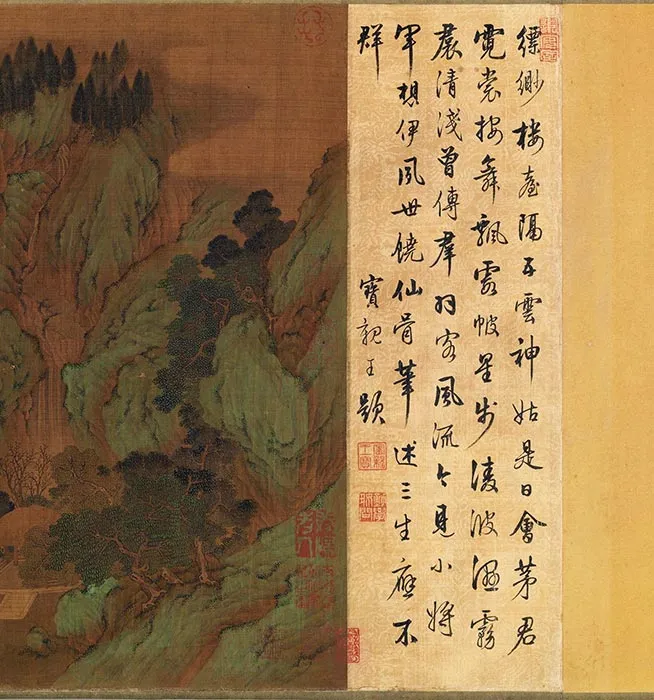 縹緲楼臺隔五雲神姑是日會茅君
霓裳按舞飄霞帔星步淩波濕霧
裠清淺曾傳羣羽客風流今見小將
軍想伊夙世饒仙骨筆述三生應不
群
寶親王題